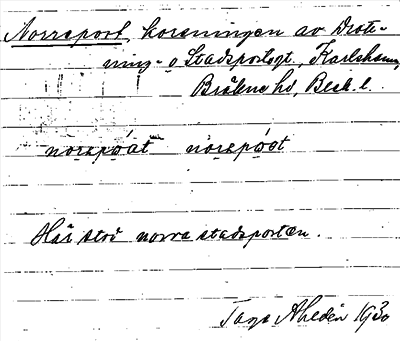 Norreport, korsningen av Drott-
ning- o Stadsportsgt., Karlshamn,
Bräkne hd, Blek. l.
nȯrapǿat nȯrapǿat
Här stod norra stadsporten.
Tage Ahldén 1930